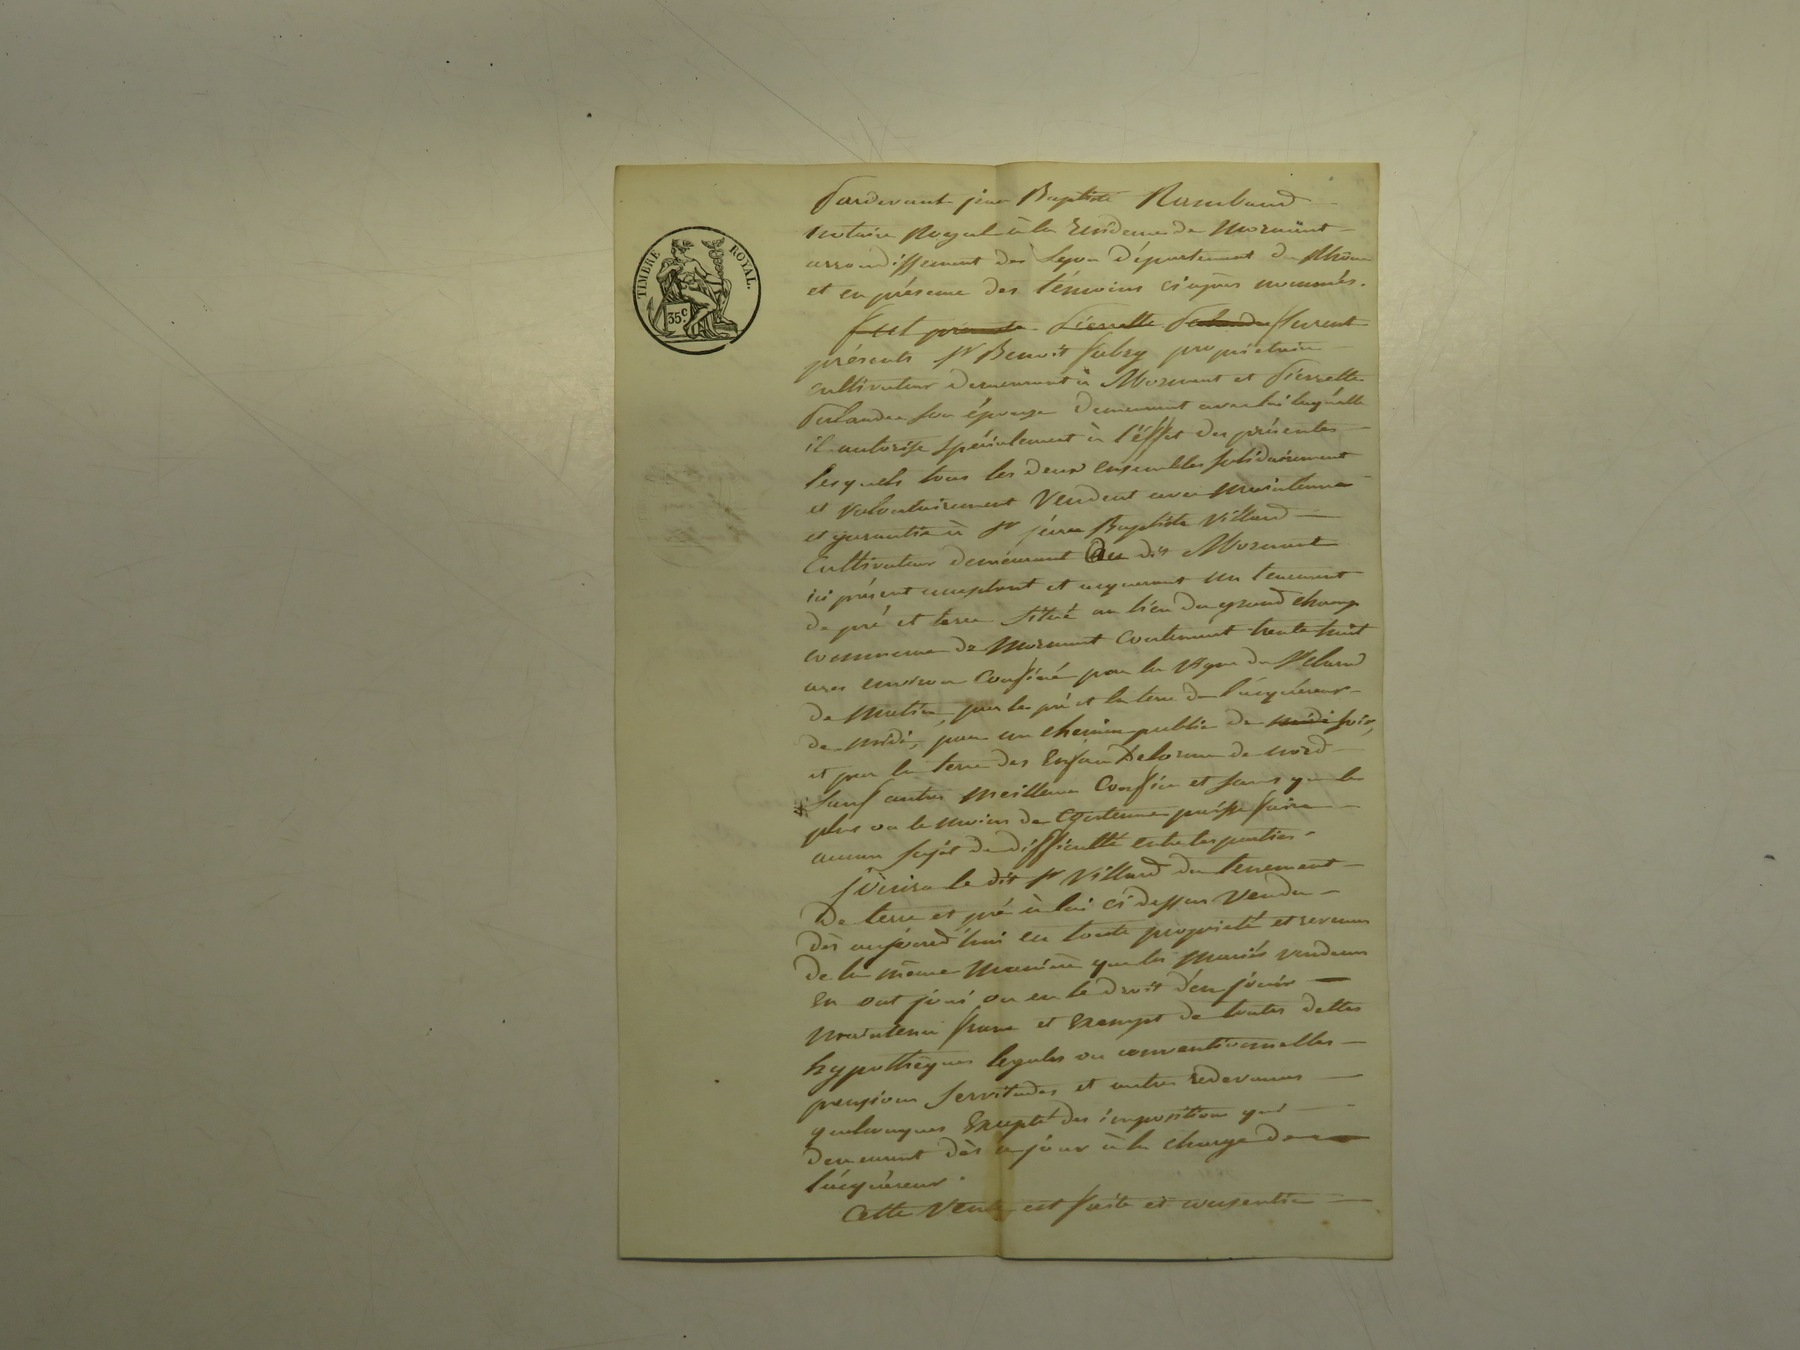 TIMBRE ROYAL.
35c
Pardevant jean Baptiste Rambaud
notaire Royal à la Résidence de Mornant
arrondissement de Lyon département du Rhône
et en présence des témoins ci après nommés.
fut présente Pierrette furent
présents Sr Benoit propriétaire
cultivateur demeurant à Mornant et Pierrette
son épouse demeurant avec lui laquelle
il autorise spécialement à l'éffet des présentes
lesquels tous les deux ensembles solidairement
et volontairement Vendent avec maintenue
et garantie à Sr jean Baptiste Villard
Cultivateur demeurant au dit Mornant
ici présent acceptant et acquerant un tenement
de pré et terre situé au lieu du grand champ
commune de Mornant Contenant trente huit
ares environ Confiné par la vigne du Sr
de matin, par le pré et la terre de l'acquéreur
de midi, par un chemin public de midi soir,
et par la terre des Enfans Delorme de nord
sauf autres meilleurs Confins et sans que le
plus ou le moins de Contenue puisse faire
aucun sujet de difficulté entre les parties
jouira le dit Sr Villard du tenement
De terre et pré à lui ci dessus Vendu
dès aujourd'hui en toute propriété et revenus
de la même manière que les mariés vendeurs
En ont joui ou eu le droit d'en jouir
maintenu franc et Exempt de toutes dettes
hypothèques légales ou conventionnelles
pensions servitudes et autres redevances
quelconques Excepté des impositions qui
demeurent dès ce jour à la charge de
l'acquéreur.
Cette Vente est faite et consentie